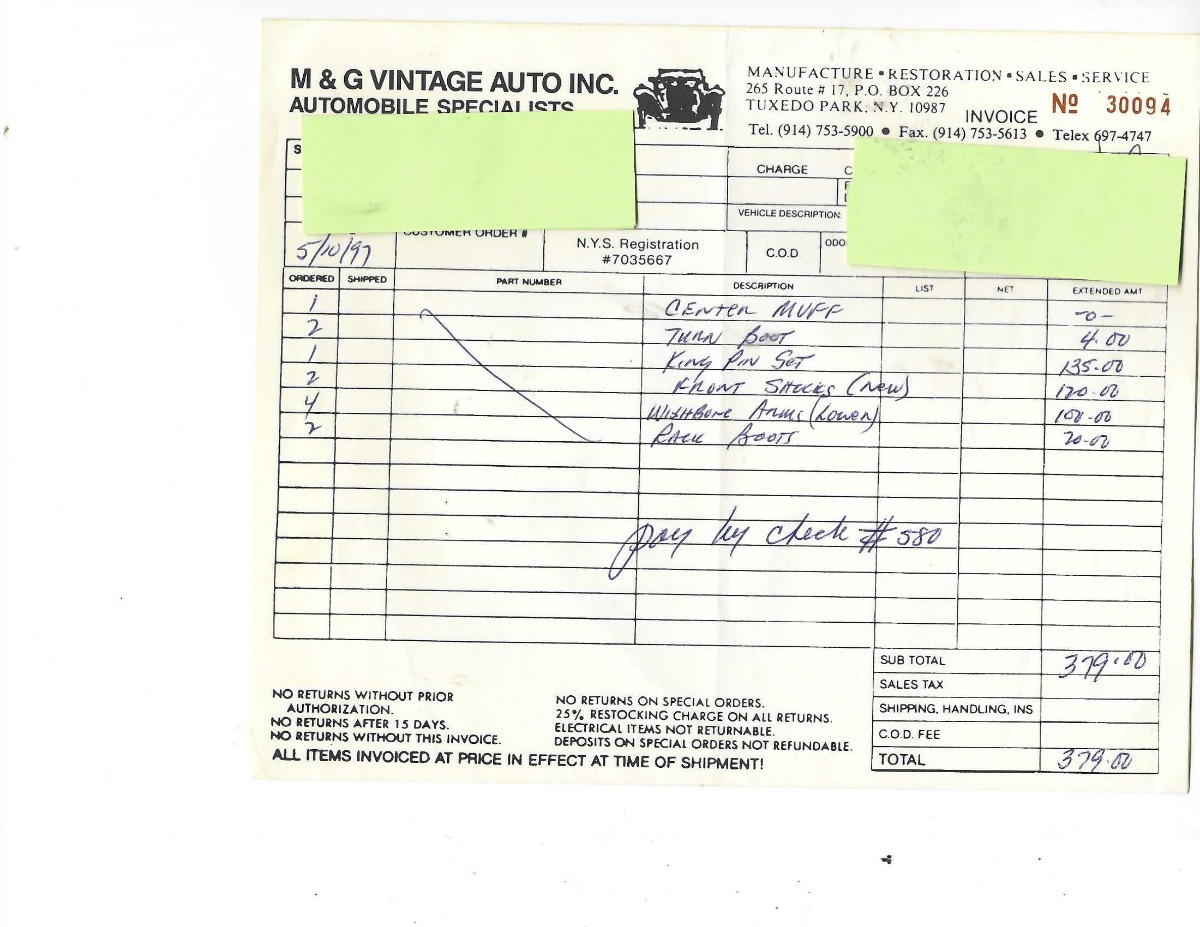 M & G VINTAGE AUTO INC.
AUTOMOBILE SPECIALISTS
MANUFACTURE • RESTORATION • SALES • SERVICE
265 Route # 17, P.O. BOX 226
TUXEDO PARK, N.Y. 10987
INVOICE Nº 30094
Tel. (914) 753-5900 • Fax. (914) 753-5613 • Telex 697-4747
CHARGE
VEHICLE DESCRIPTION:
5/10/97 CUSTOMER ORDER # N.Y.S. Registration #7035667 C.O.D
ORDERED SHIPPED PART NUMBER DESCRIPTION LIST NET EXTENDED AMT
1 CENTER MUFF -0-
2 TURN BOOT 4.00
1 KING PIN SET 135.00
2 FRONT SHOCKS (NEW) 120.00
4 WISHBONE ARMS (LOWER) 100.00
2 RACK BOOTS 20.00
pay by check # 580
SUB TOTAL 379.00
SALES TAX
SHIPPING, HANDLING, INS
C.O.D. FEE
TOTAL 379.00
NO RETURNS WITHOUT PRIOR
AUTHORIZATION.
NO RETURNS AFTER 15 DAYS.
NO RETURNS WITHOUT THIS INVOICE.
NO RETURNS ON SPECIAL ORDERS.
25% RESTOCKING CHARGE ON ALL RETURNS.
ELECTRICAL ITEMS NOT RETURNABLE.
DEPOSITS ON SPECIAL ORDERS NOT REFUNDABLE.
ALL ITEMS INVOICED AT PRICE IN EFFECT AT TIME OF SHIPMENT!